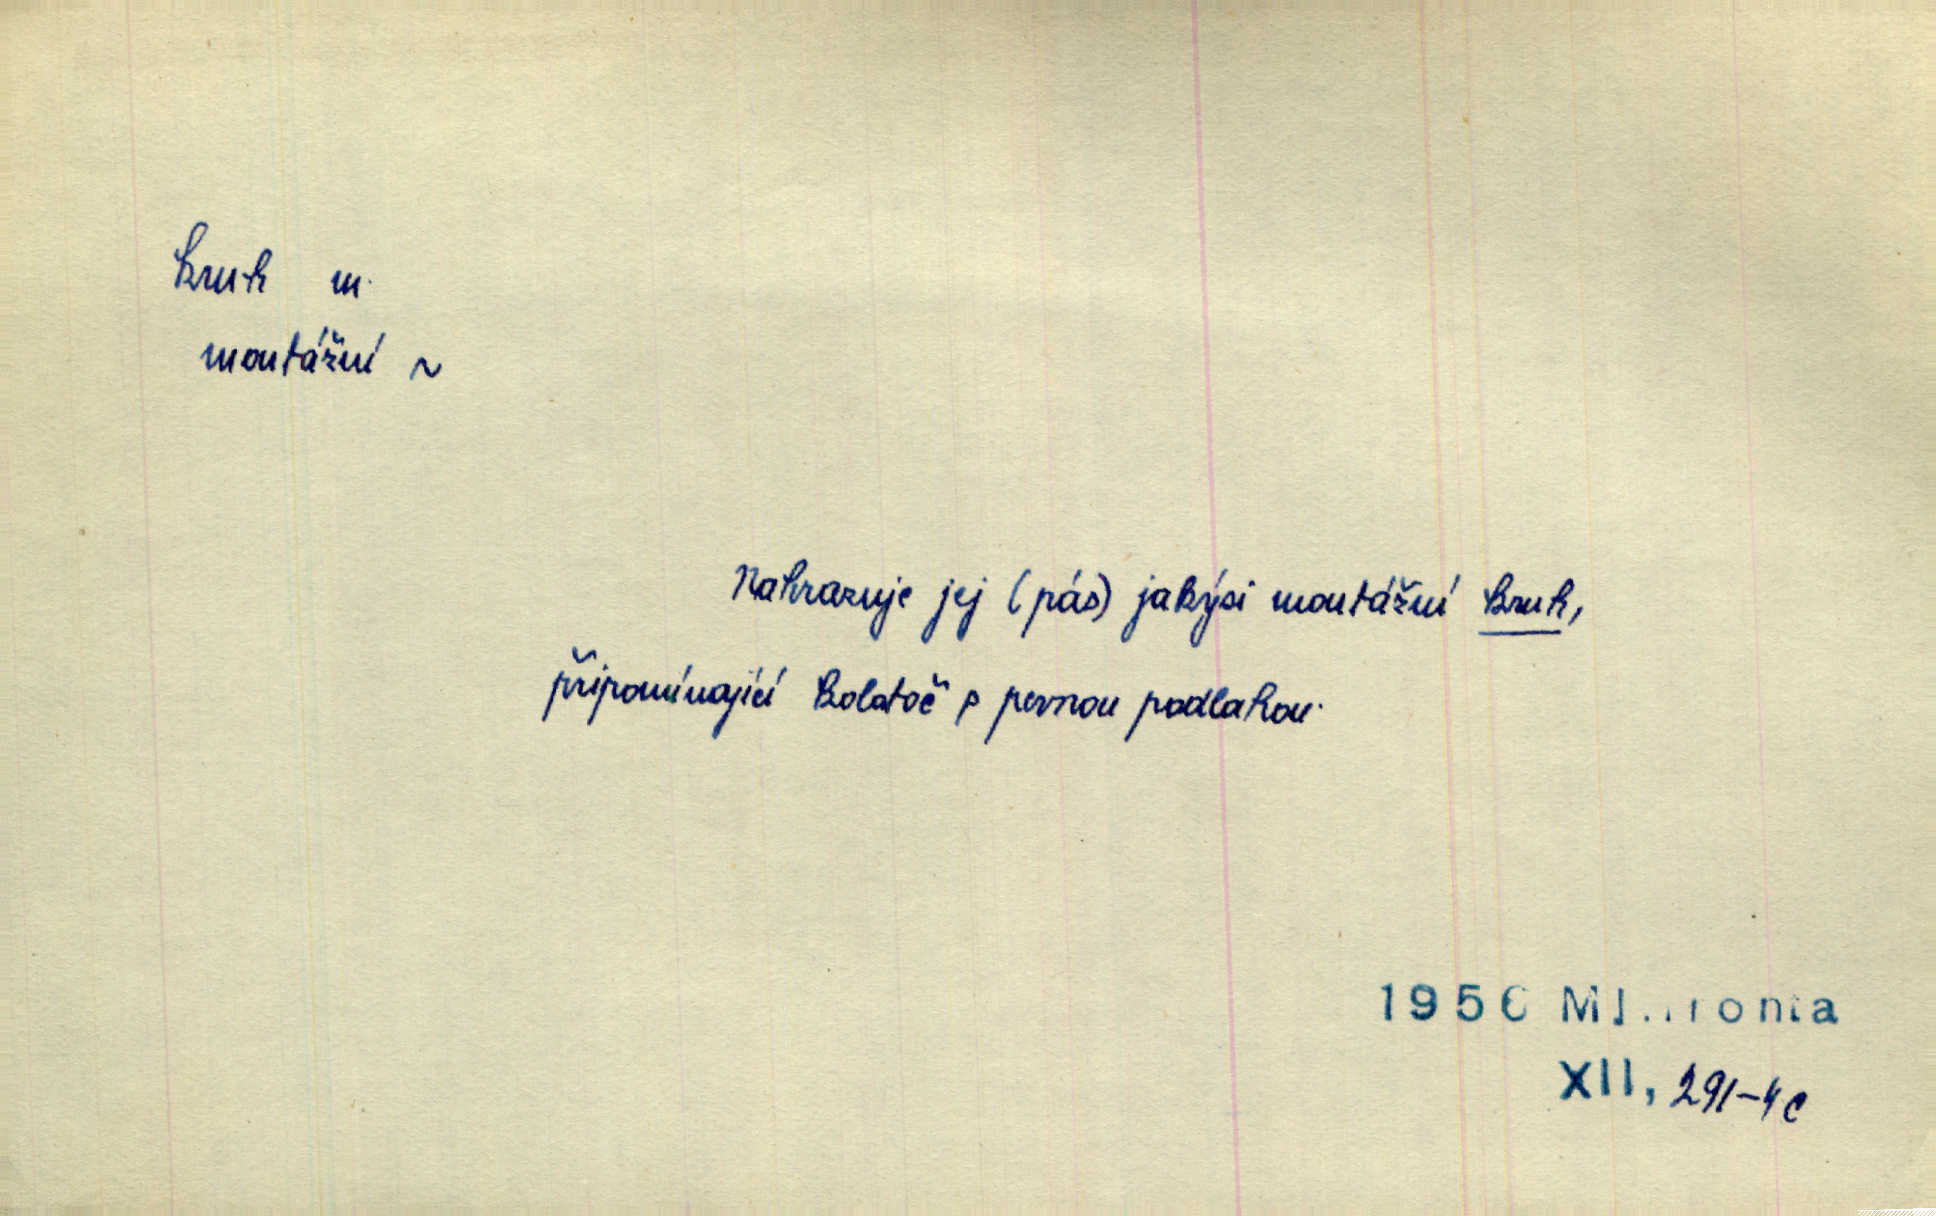 kruh m.
montážní ~
Nahrazuje jej (pás) jakýsi montážní kruh,
připomínající kolotoč s pevnou podlahou.
1956
XII, 291-4c